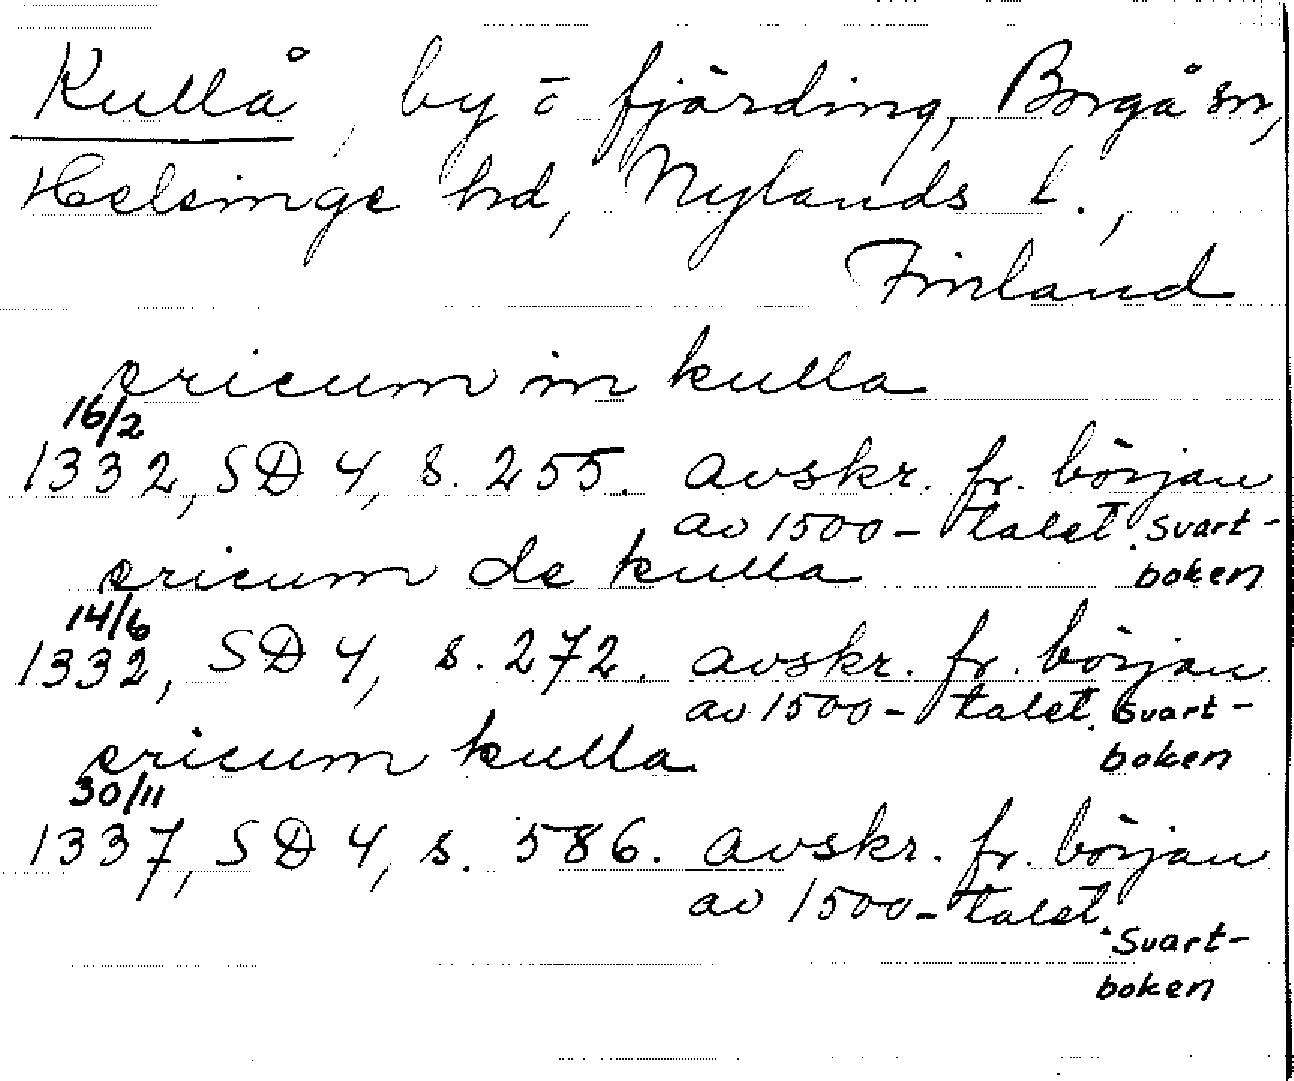 Kullå, by o fjärding, Borgå sn,
Helsinge hd, Nylands l.,
Finland
ericum in kulla
16/2
1332, SD 4, s. 255. avskr. fr. början
av 1500-talet. Svart-
ericum de kulla boken
14/6
1332, SD 4, s. 272. avskr. fr. början
av 1500-talet. Svart-
ericum kulla boken
30/11
1337, SD 4, s. 586. avskr. fr. början
av 1500-talet.
Svart-
boken